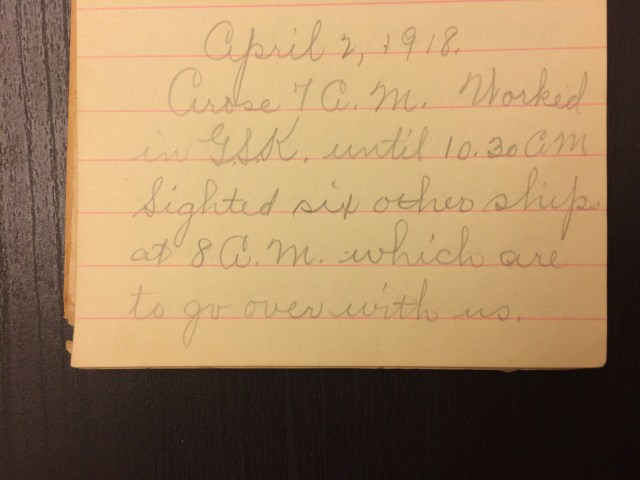 April 2, 1918.
Arose 7 A. M. Worked
in G.S.K. until 10.30 AM
Sighted six other ships
at 8 A. M. which are
to go over with us.